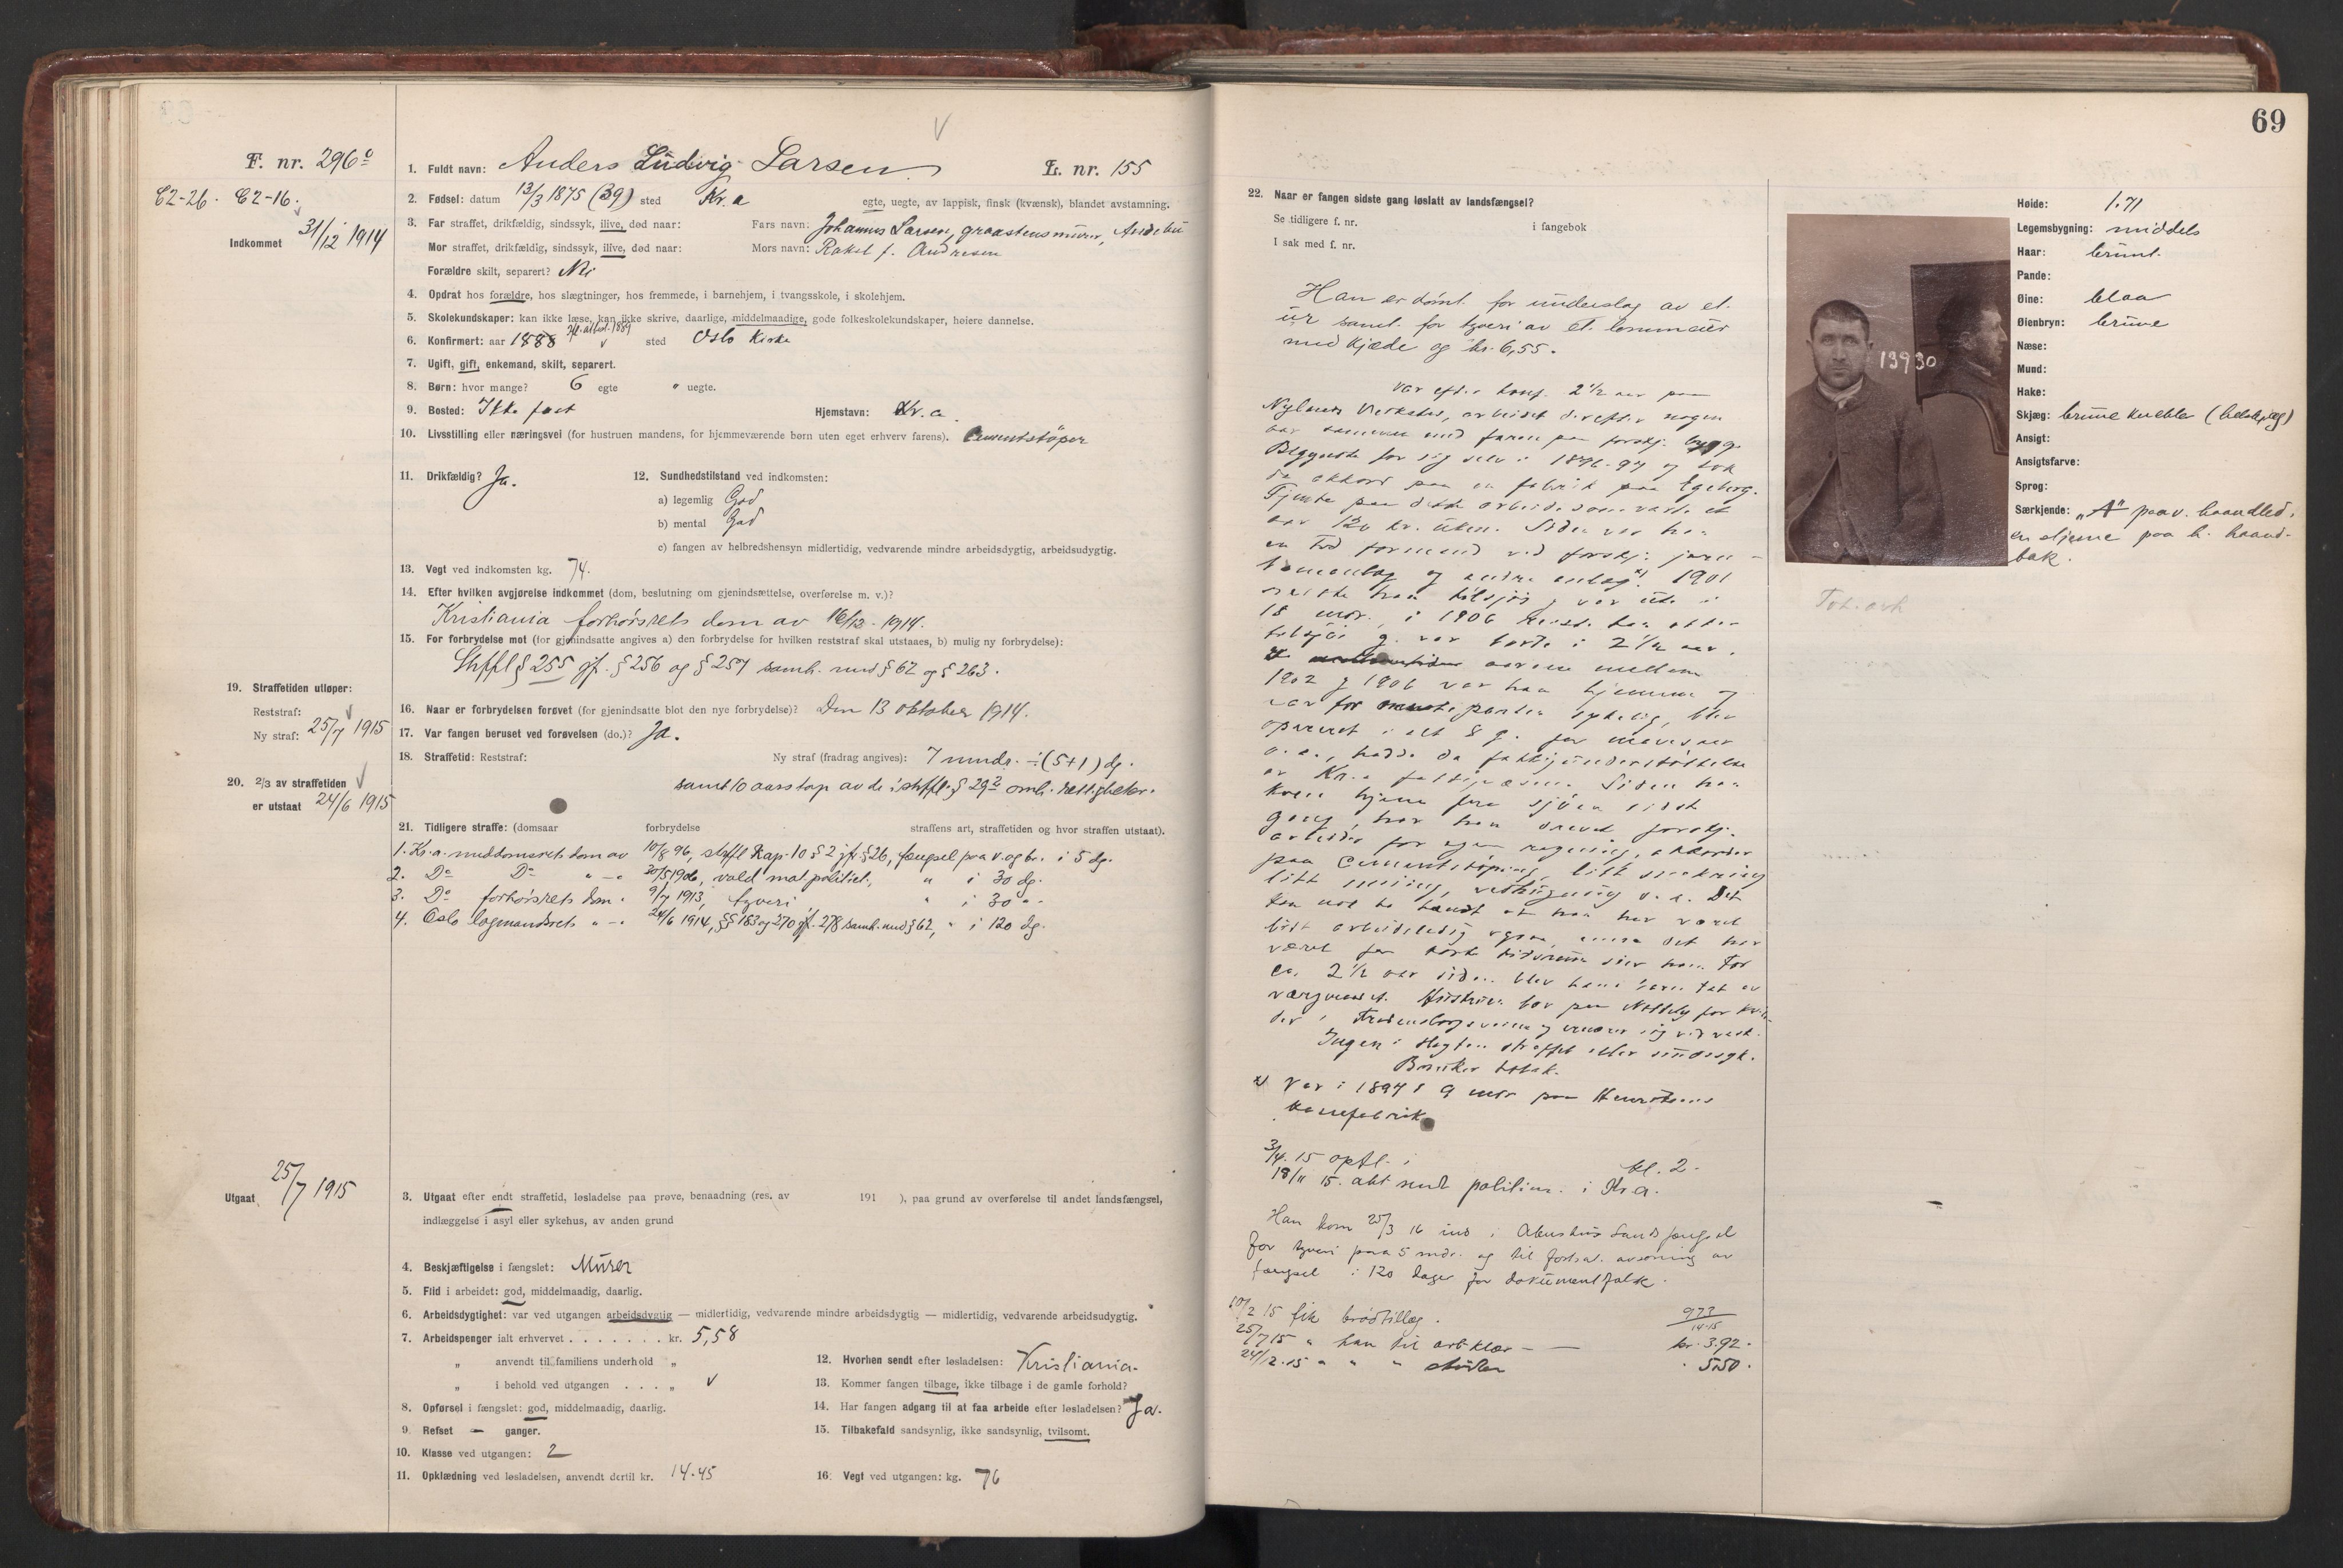 F. nr. 296
C2-26. C2-16.
Indkommet 31/12 1914
1. Fuldt navn: Anders Ludvig Larsen
L. nr. 155
2. Fødsel: datum 13/3 1875 (39) sted Kr.a egte, uegte, av lappisk, finsk (kvænsk), blandet avstamning.
3. Far straffet, drikfældig, sindssyk, ilive, død naar: Fars navn: Johannes Larsen, graastensmurer,
Mor straffet, drikfældig, sindssyk, ilive, død naar: Mors navn: Rakel f. Andresen
Forældre skilt, separert? Nei
4. Opdrat hos forældre, hos slægtninger, hos fremmede, i barnehjem, i tvangsskole, i skolehjem.
5. Skolekundskaper: kan ikke læse, kan ikke skrive, daarlige, middelmaadige, gode folkeskolekundskaper, høiere dannelse.
6. Konfirmert: aar 1888 1889 sted Oslo Kirke
7. Ugift, gift, enkemand, skilt, separert.
8. Børn: hvor mange? 6 egte " uegte.
9. Bosted: Ikke fast Hjemstavn: Kr.a.
10. Livsstilling eller næringsvei (for hustruen mandens, for hjemmeværende børn uten eget erhverv farens). Cementstöper
11. Drikfældig? Ja.
12. Sundhedstilstand ved indkomsten:
a) legemlig God
b) mental God
c) fangen av helbredshensyn midlertidig, vedvarende mindre arbeidsdygtig, arbeidsudygtig.
13. Vegt ved indkomsten kg. 74.
14. Efter hvilken avgjørelse indkommet (dom, beslutning om gjenindsættelse, overførelse m. v.)?
Kristiania forhörsrets dom av 16/12 - 1914.
15. For forbrydelse mot (for gjenindsatte angives a) den forbrydelse for hvilken reststraf skal utstaaes, b) mulig ny forbrydelse):
Strffl § 255 jf. § 256 og § 257 samh. med § 62 og § 263.
16. Naar er forbrydelsen forøvet (for gjenindsatte blot den nye forbrydelse)? Den 13 oktober 1914.
17. Var fangen beruset ved forøvelsen (do.)? Ja.
18. Straffetid: Reststraf: Ny straf (fradrag angives): 7 mndr. ÷ (5+1) dg.
samt 10 aars tap av de i strffl. § 29 omh. rettigheter.
19. Straffetiden utløper:
Reststraf:
Ny straf: 25/7 1915
20. 2/3 av straffetiden
er utstaat 24/6 1915
21. Tidligere straffe: (domsaar forbrydelse straffens art, straffetiden og hvor straffen utstaat).
1. Kr.a. meddomsrets dom av 10/8 96, strffl Kap. 10 § 2 jf. § 26, fængsel paa v. og br. i 5 dg.
2. Do Do " - 30/5 1906, vold mot politiet, " i 30 dg.
3. Do forhörsrets dom. 9/7 1913, tyveri " i 30 " -
4. Oslo lagmandsrets " - 24/6 1914, §§ 163 og 270 jf. 278 samh. med § 62, " i 120 dg.
Utgaat 25/7 1915
3. Utgaat efter endt straffetid, løsladelse paa prøve, benaadning (res. av 191 ), paa grund av overførelse til andet landsfængsel,
indlæggelse i asyl eller sykehus, av anden grund
4. Beskjæftigelse i fængslet: Murer
5. Flid i arbeidet: god, middelmaadig, daarlig.
6. Arbeidsdygtighet: var ved utgangen arbeidsdygtig — midlertidig, vedvarende mindre arbeidsdygtig — midlertidig, vedvarende arbeidsudygtig.
7. Arbeidspenger ialt erhvervet . . . . . . . kr. 5,58
" anvendt til familiens underhold "
" i behold ved utgangen . . . . "
8. Opførsel i fængslet: god, middelmaadig, daarlig.
9. Refset — ganger.
10. Klasse ved utgangen: 2
11. Opklædning ved løsladelsen, anvendt dertil kr. 14.45
12. Hvorhen sendt efter løsladelsen: Kristiania.
13. Kommer fangen tilbage, ikke tilbage i de gamle forhold?
14. Har fangen adgang til at faa arbeide efter løsladelsen? Ja.
15. Tilbakefald sandsynlig, ikke sandsynlig, tvilsomt.
16. Vegt ved utgangen: kg. 76
69
22. Naar er fangen sidste gang løslatt av landsfængsel?
Se tidligere f. nr. i fangebok
I sak med f. nr.
Han er dömt for underslag av et
ur samt for tyveri av et lommeur
med kjæde og kr. 6,55.
Var efter konf. 2 1/2 aar paa
Nylands Verksted, arbeidet derefter nogen
aar sammen med faren paa forskj. bygg.
Begyndte for sig selv i 1896-97 og tok
da akkord paa en fabrik paa Egeberg.
Tjente paa dette arbeide som varte et
aar 120 kr. uken. Siden var han
en tid formand ved forskj. jern-
og andre anlæg x) 1901
reiste han tilsjös og var ute i
18 mdr., i 1906 reiste han atter
tilsjös og var borte i 2 1/2 aar.
aarene mellem
1902 og 1906 var han hjemme og
var for meste parten sykelig, blev
operert i alt 8 g. for mavesaar
o.a., hadde da fattigunderstöttelse
av Kr.a fattigvæsen. Siden han
kom hjem fra sjöen sidst
gang, har han drevet forskj.
arbeider for egen regning, akkorder
paa cementstöping, litt snekring
litt muring, vedhugging o.a. Det
kan nok ha hændt at han har været
litt arbeidsledig ogsaa, men det har
været for korte tidsrum sier han. For
ca. 2 1/2 aar siden blev hans barn tat av
værgeraadet. Hustruen bor paa Nattely for kvin-
der i Fredensborgveien og ernærer sig ved vask.
Ingen i slegten straffet eller sindssyk.
Bruker tobak.
x) Var i 1897 i 9 mdr paa
3/4. 15 opfl. i kl. 2.
18/11 15. akt sendt politim. i Kr.a.
Han kom 25/3 16 ind i Akershus Landsfængsel
for tyveri paa 5 mdr. og til forts. avsoning av
fængsel i 120 dager for dokumentfalsk.
10/2 15 fik brödtillæg. 973/14-15
25/7 15 " han til arb.klær — — kr. 3.92.
24/12.15 " " " 5.50.
13930
Høide: 1.71
Legemsbygning: middels
Haar: brunt.
Pande:
Øine: blaa
Øienbryn: brune
Næse:
Mund:
Hake:
Skjæg: brune knebler (helskjæg)
Ansigt:
Ansigtsfarve:
Sprog:
Særkjende: „A" paa v. haandled,
en stjerne paa h. haand-
bak.